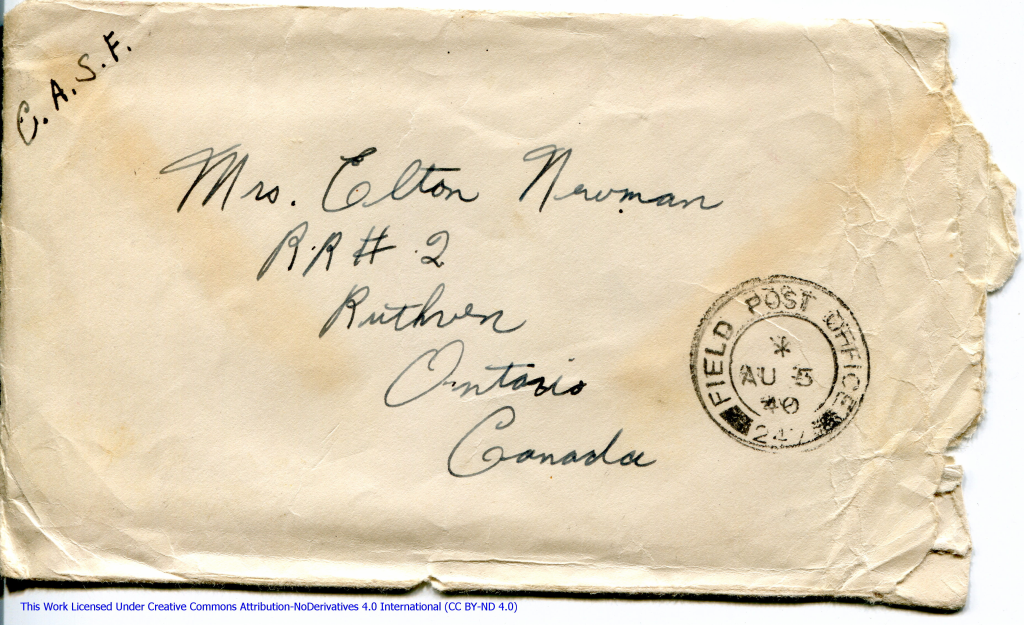 C. A. S. F.
Mrs. Elton Newman
R.R # 2
Ruthven
Ontario
Canada
FIELD POST OFFICE
*
AU 5
40
247
This Work Licensed Under Creative Commons Attribution-NoDerivatives 4.0 International (CC BY-ND 4.0)